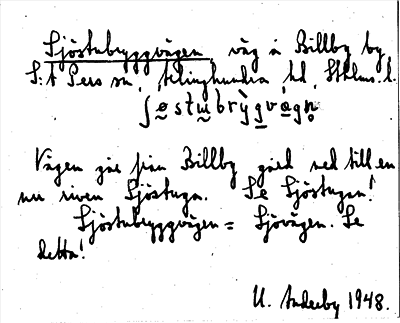 Sjöstubryggvägen, väg å Billby by
S:t Pers sn, Seminghundra hd, Sthlms. l.
ʃøstɯbrỳgvägn̥
Vägen går från Billby gård ned till en
nu riven Sjöstuga. Se Sjöstugan!
Sjöstubryggvägen = Sjövägen. Se
detta!
U. Anderby 1948.